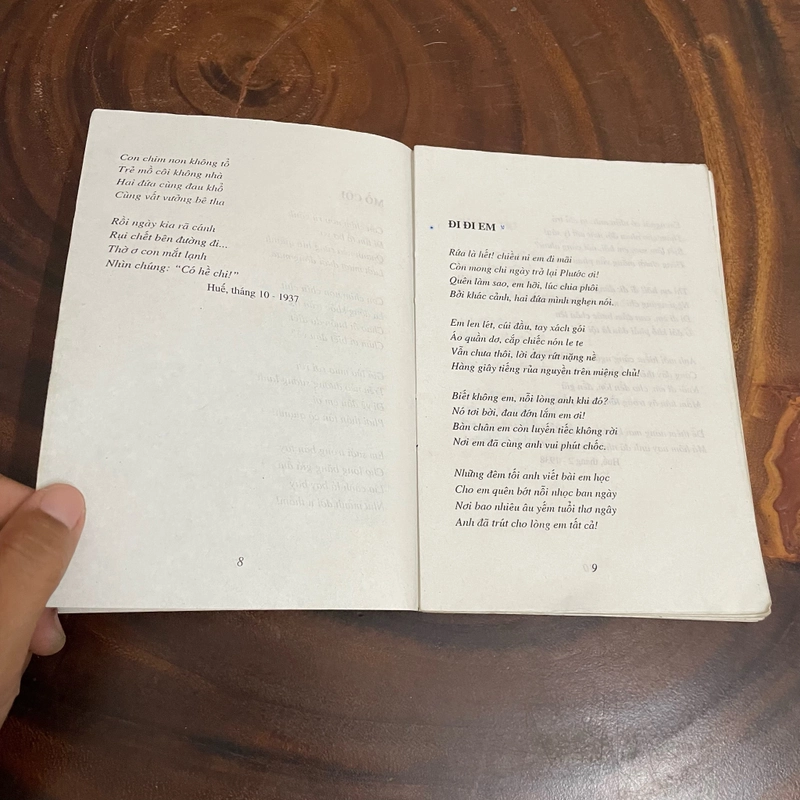 Con chim non không tổ
Trẻ mồ côi không nhà
Hai đứa cùng đau khổ
Cùng vất vưởng bê tha
Rồi ngày kia rã cánh
Rụi chết bên đường đi...
Thờ ơ con mắt lạnh
Nhìn chúng: "Có hề chi!"
Huế, tháng 10 - 1937
8
ĐI ĐI EM
Rứa là hết! chiều ni em đi mãi
Còn mong chi ngày trở lại Phước ơi!
Quên làm sao, em hỡi, lúc chia phôi
Bởi khác cảnh, hai đứa mình nghẹn nói.
Em len lét, cúi đầu, tay xách gói
Áo quần dơ, cắp chiếc nón le te
Vẫn chưa thôi, lời đay rứt nặng nề
Hàng giây tiếng rủa nguyền trên miệng chủ!
Biết không em, nỗi lòng anh khi đó?
Nó tơi bời, đau đớn lắm em ơi!
Bàn chân em còn luyến tiếc không rời
Nơi em đã cùng anh vui phút chốc.
Những đêm tối anh viết bài em học
Cho em quên bớt nỗi nhọc ban ngày
Nơi bao nhiêu âu yếm tuổi thơ ngây
Anh đã trút cho lòng em tất cả!
9